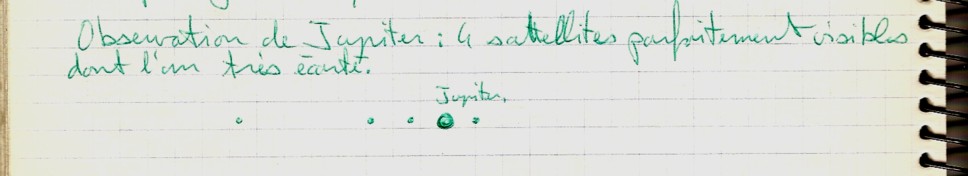 Observation de Jupiter : 4 sattellites parfaitement visibles
dont l'un très écarté.
Jupiter.